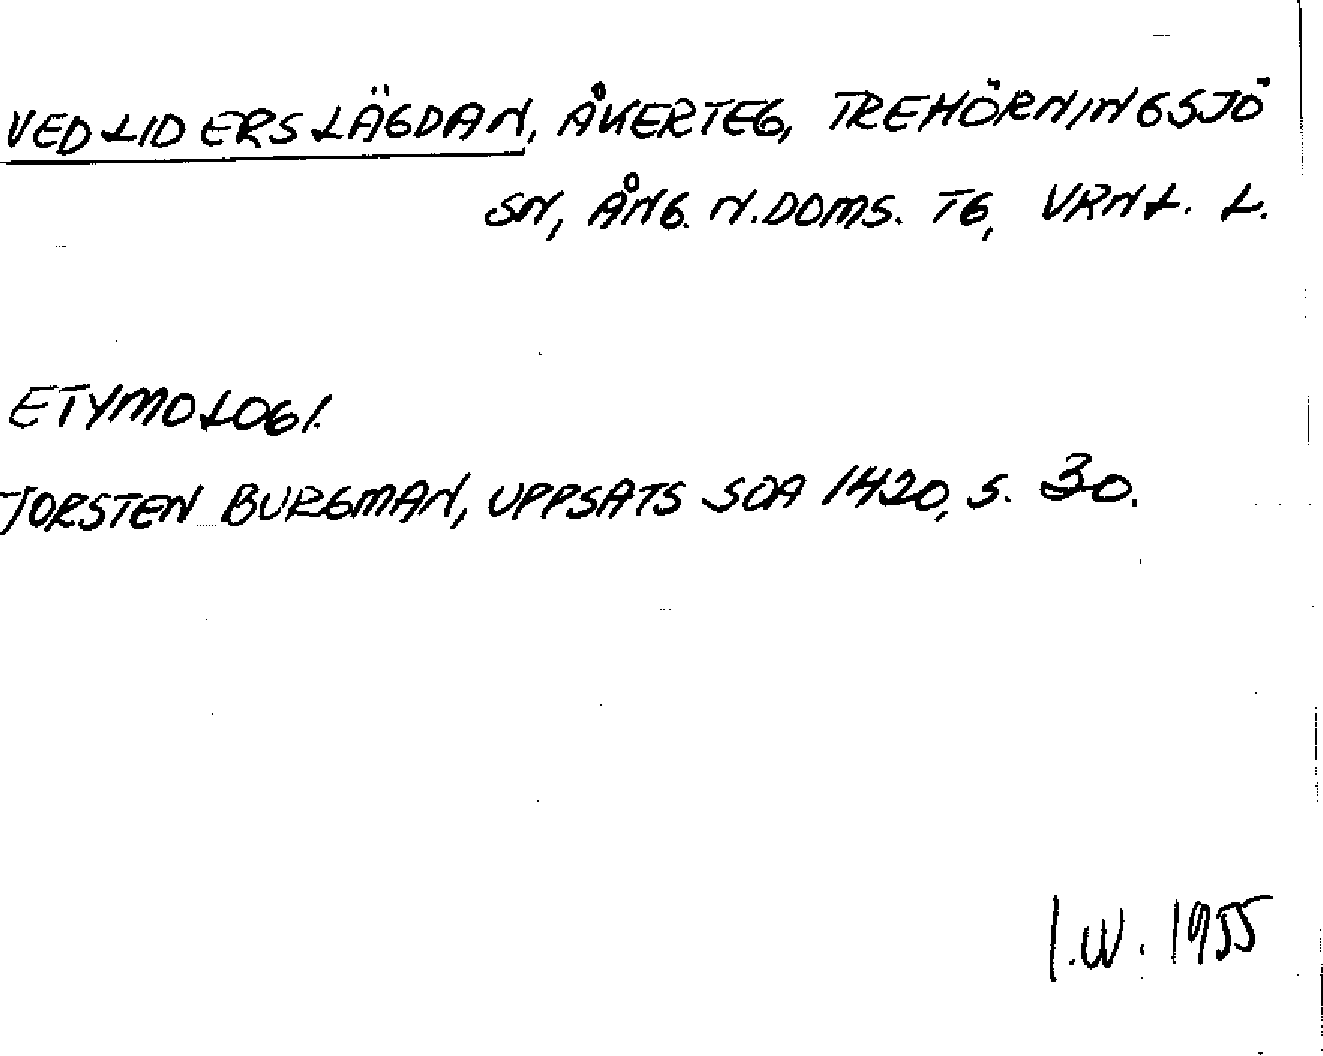 VEDLIDERSLÄGDAN, ÅKERTEG, TREHÖRNINGSJÖ
SN, ÅNG. N. DOMS. TG, VRNL. L.
ETYMOLOGI.
TORSTEN BURGMAN, UPPSATS SOA 1420, S. 30.
I.W. 1955